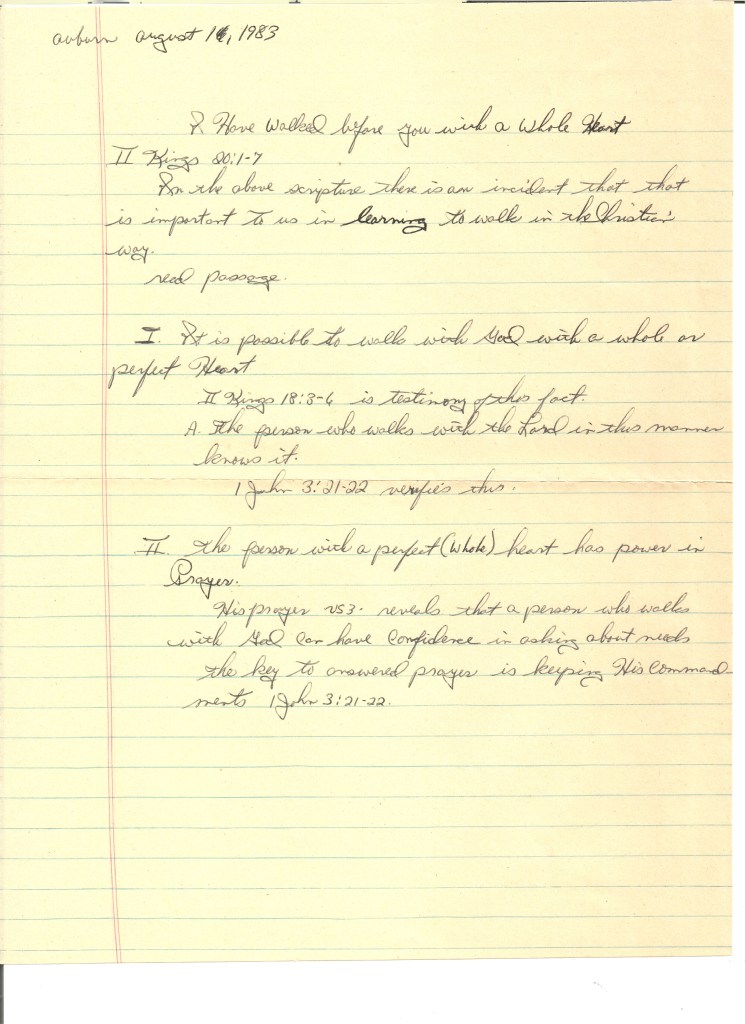 auburn august 16, 1983
I Have Walked before you with a Whole Heart
II Kings 20:1-7
In the above scripture there is an incident that that
is important to us in learning to walk in the Christian
way.
read passage.
I. It is possible to walk with God with a whole or
perfect Heart
II Kings 18:3-6 is testimony of this fact.
A. the person who walks with the Lord in this manner
knows it.
1 John 3:21-22 verifies this.
II. the person with a perfect (whole) heart has power in
Prayer.
His prayer vs 3. reveals that a person who walks
with God can have confidence in asking about needs
the key to answered prayer is keeping His command-
ments 1 John 3:21-22.